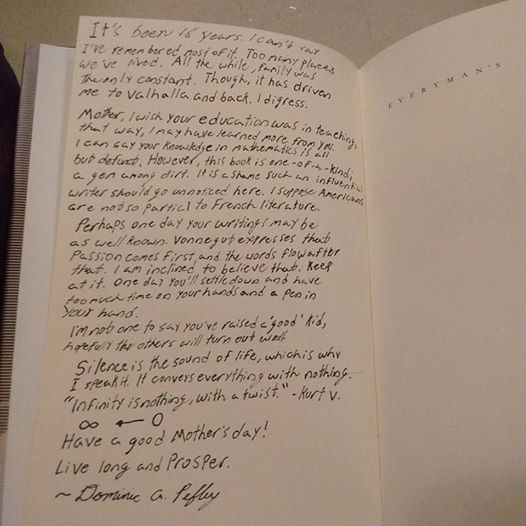 It's been 18 years. I can't say
I've remembered most of it. Too many places
we've lived. All the while, family was
the only constant. Though, it has driven
me to Valhalla and back. I digress.
Mother, I wish your education was in teaching,
that way, I may have learned more from you.
I can say your knowledge in mathematics is all
but defunct. However, this book is one-of-a-kind;
a gem among dirt. It is a shame such an influential
writer should go unnoticed here. I suppose Americans
are not so partial to French literature.
Perhaps one day your writings may be
as well known. Vonnegut expresses that
Passion comes first, and the words flow after
that. I am inclined to believe that. Keep
at it. One day you'll settle down and have
too much time on your hands and a pen in
your hand.
I'm not one to say you've raised a 'good' kid,
hopefully the others will turn out well.
Silence is the sound of life, which is why
I speak it. It conveys everything with nothing.
"Infinity is nothing, with a twist." -Kurt V.
∞ ← 0
Have a good Mother's day!
Live long and Prosper.
~ Dominic G. Peffley
EVERYMAN'S